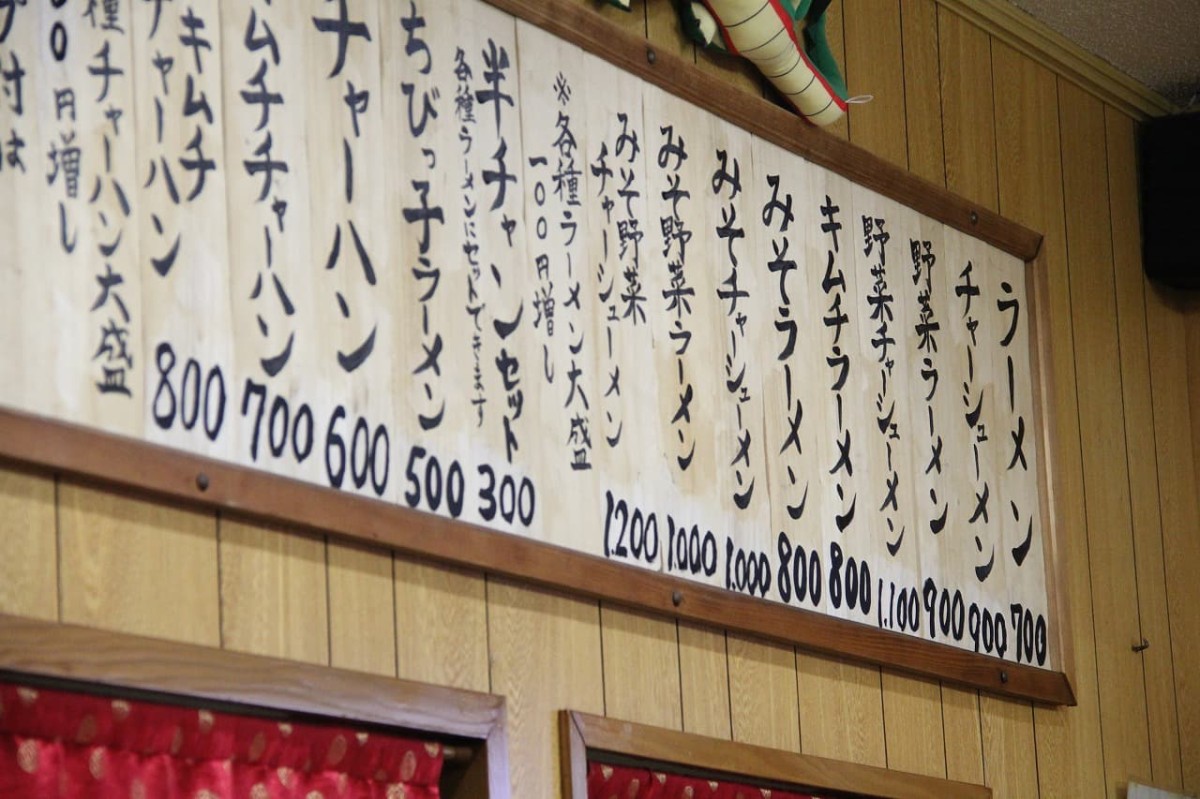 ラーメン 700
チャーシューメン 900
野菜ラーメン 900
野菜チャーシューメン 1.100
キムチラーメン 800
みそラーメン 800
みそチャーシューメン 1.000
みそ野菜ラーメン 1.000
みそ野菜
チャーシューメン 1.200
※各種ラーメン大盛
一〇〇円増し
半チャンセット 300
各種ラーメンにセットできます
ちびっ子ラーメン 500
チャーハン 600
ムチチャーハン 700
キムチ
チャーハン 800
種チャーハン大盛
〇〇円増し
付は